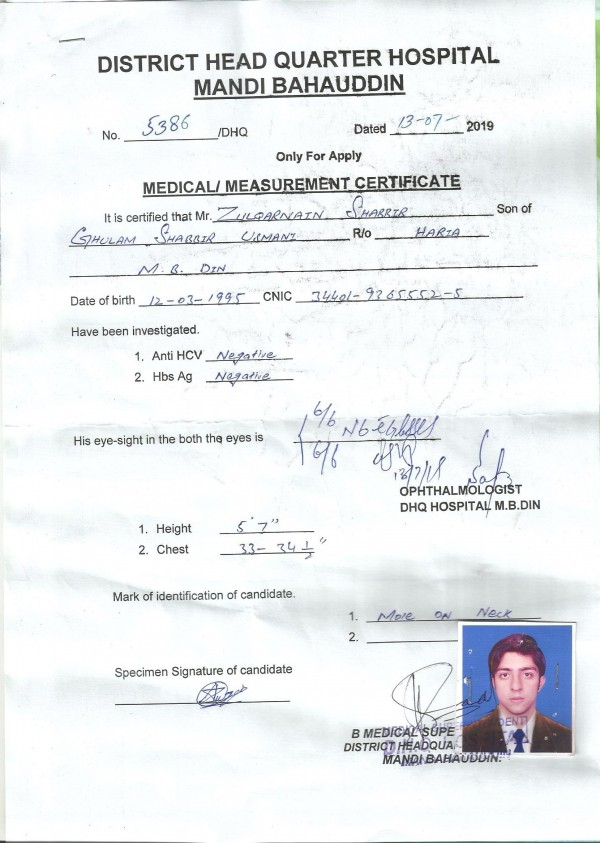 DISTRICT HEAD QUARTER HOSPITAL
MANDI BAHAUDDIN
No. 5386 /DHQ Dated 13-07- 2019
Only For Apply
MEDICAL/ MEASUREMENT CERTIFICATE
It is certified that Mr. ZULQARNAIN SHABBIR Son of
GHULAM SHABBIR USMANI R/o HARIA
M.B. DIN
Date of birth 12-03-1995 CNIC 34401-9365552-5
Have been investigated.
1. Anti HCV Negative
2. Hbs Ag Negative
6/6
His eye-sight in the both the eyes is
6/6
OPHTHALMOLOGIST
DHQ HOSPITAL M.B.DIN
1. Height 5' 7"
2. Chest 33- 34 1/2"
Mark of identification of candidate.
1. Mole ON Neck
2.
Specimen Signature of candidate
B MEDICAL SUPE
DISTRICT HEADQUA
MANDI BAHAUDDIN.